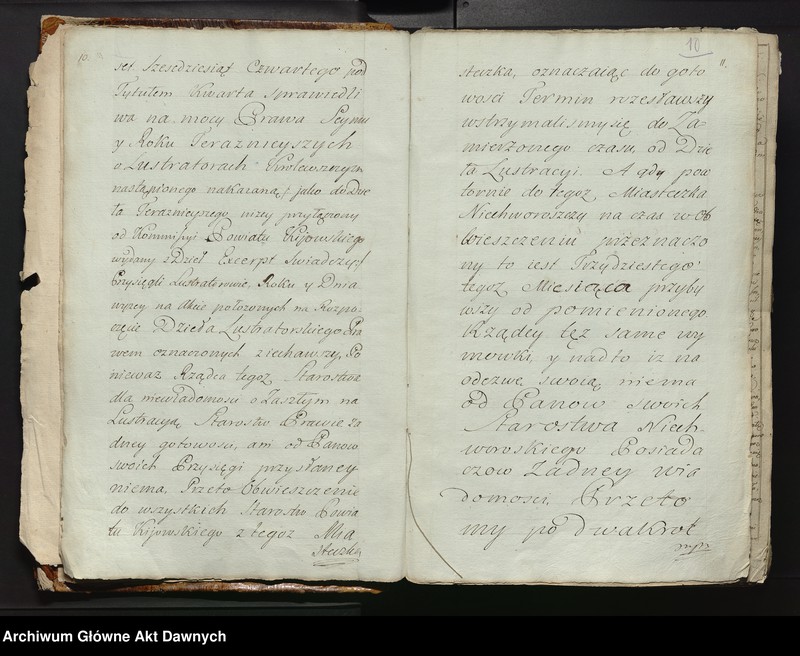 10.
set Szescdziesiąt Czwartego pod
Tytułem Kwarta Sprawiedli
wa na mocy Prawa Seymu
y Roku Teraznieyszych
o Lustratorach Krolewszczyzn
nastąpionego nakazaną / jako do Dzie
ła Teraznieyszego nizey przyłączony
od Kommissyi Powiatu Kijowskiego
wydany z Dzieł Excerpt Swiadczy /
Przysięgli Lustratorowie, Roku y Dnia
wyzey na Akcie położonych na Rozpo-
częcie Dzieła Lustratorskiego Pra
wem oznaczonych ziechawszy, Po
niewaz Rządca tegoz Starostwa
dla niewiadomosci o Zaszłym na
Lustracyą Starostw Prawie za
dney gotowosci, ani od Panow
swoich Przysięgi przysłaney
niema, Przeto Obwieszczenie
do wszystkich Starostw Powia
tu Kijowskiego z tegoz Mia
steczka
10
11.
steczka, oznaczaiąc do goto
wosci Termin rozesławszy
wstrzymalismy się do Za-
mierzonego czasu od Dzie
ła Lustracyi. A gdy pow
tornie do tegoz Miasteczka
Niechworoszczy na czas w Ob
wieszczeniu przeznaczo
ny to iest Trzydziestego
tegoz Miesiąca przyby
wszy od pomienionego
Rządcy też same wy
mowki, y nadto iz na
odezwę swoią niema
od Panow swoich
Starostwa Niech
woroskiego Posiada
czow Zadney wia
domosci. Przeto
my po dwakroć